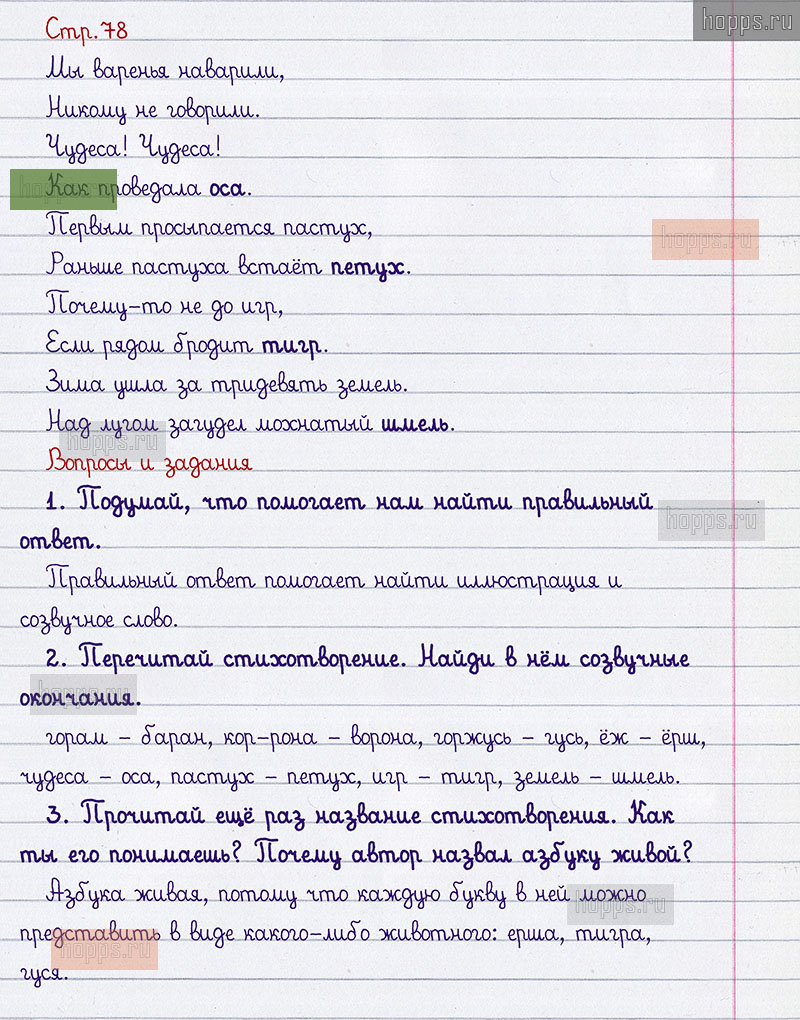 hopps.ru
Стр. 78
Мы варенья наварили,
Никому не говорили.
Чудеса! Чудеса!
Как проведала оса.
Первым просыпается пастух,
hopps.ru
Раньше пастуха встаёт петух.
Почему-то не до игр,
Если рядом бродит тигр.
Зима ушла за тридевять земель.
Над лугом загудел мохнатый шмель.
hopps.ru
Вопросы и задания
1. Подумай, что помогает нам найти правильный
hopps.ru
ответ.
Правильный ответ помогает найти иллюстрация и
созвучное слово.
2. Перечитай стихотворение. Найди в нём созвучные
окончания.
hopps.ru
горам – баран, кор-рона – ворона, горжусь – гусь, ёж – ёрш,
чудеса – оса, пастух – петух, игр – тигр, земель – шмель.
3. Прочитай ещё раз название стихотворения. Как
ты его понимаешь? Почему автор назвал азбуку живой?
Азбука живая, потому что каждую букву в ней можно
hopps.ru
представить в виде какого-либо животного: ерша, тигра,
hopps.ru
гуся.